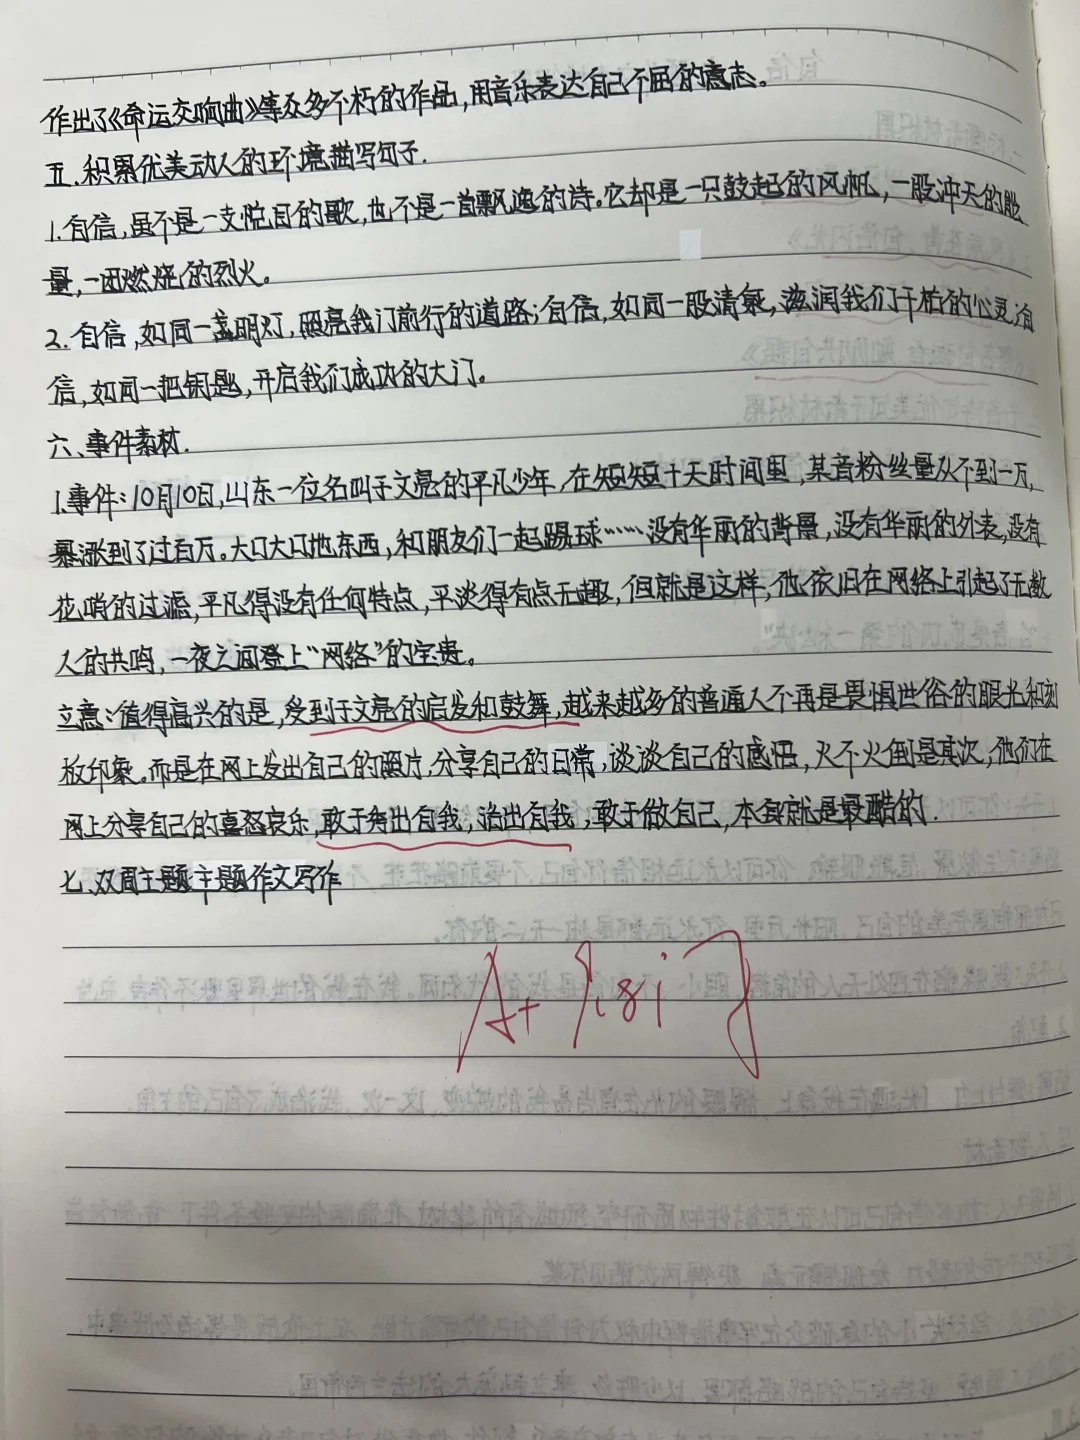 作出了《命运交响曲》等众多不朽的作品,用音乐表达自己不屈的意志。
五.积累优美动人的环境描写句子.
1.自信,虽不是一支悦目的歌,也不是一首飘逸的诗。它却是一只鼓起的风帆,一股冲天的能
量,一团燃烧的烈火。
2.自信,如同一盏明灯,照亮我们前行的道路;自信,如同一股清泉,滋润我们干枯的心灵;自
信,如同一把钥匙,开启我们成功的大门。
六、事件素材.
1.事件:10月10日,山东一位名叫于文亮的平凡少年,在短短十天时间里,某音粉丝量从不到一万,
暴涨到了过百万。大口大口地东西,和朋友们一起踢球……没有华丽的背景,没有华丽的外表,没有
花哨的过滤,平凡得没有任何特点,平淡得有点无趣,但就是这样,他依旧在网络上引起了无数
人的共鸣,一夜之间登上“网络”的宝贵。
立意:值得高兴的是,受到于文亮的启发和鼓舞,越来越多的普通人不再是畏惧世俗的眼光和刻
板印象。而是在网上发出自己的照片,分享自己的日常,谈谈自己的感悟,火不火倒是其次,他们在
网上分享自己的喜怒哀乐,敢于秀出自我,活出自我,敢于做自己,本身就是最酷的.
七.双周主题主题作文写作
A+